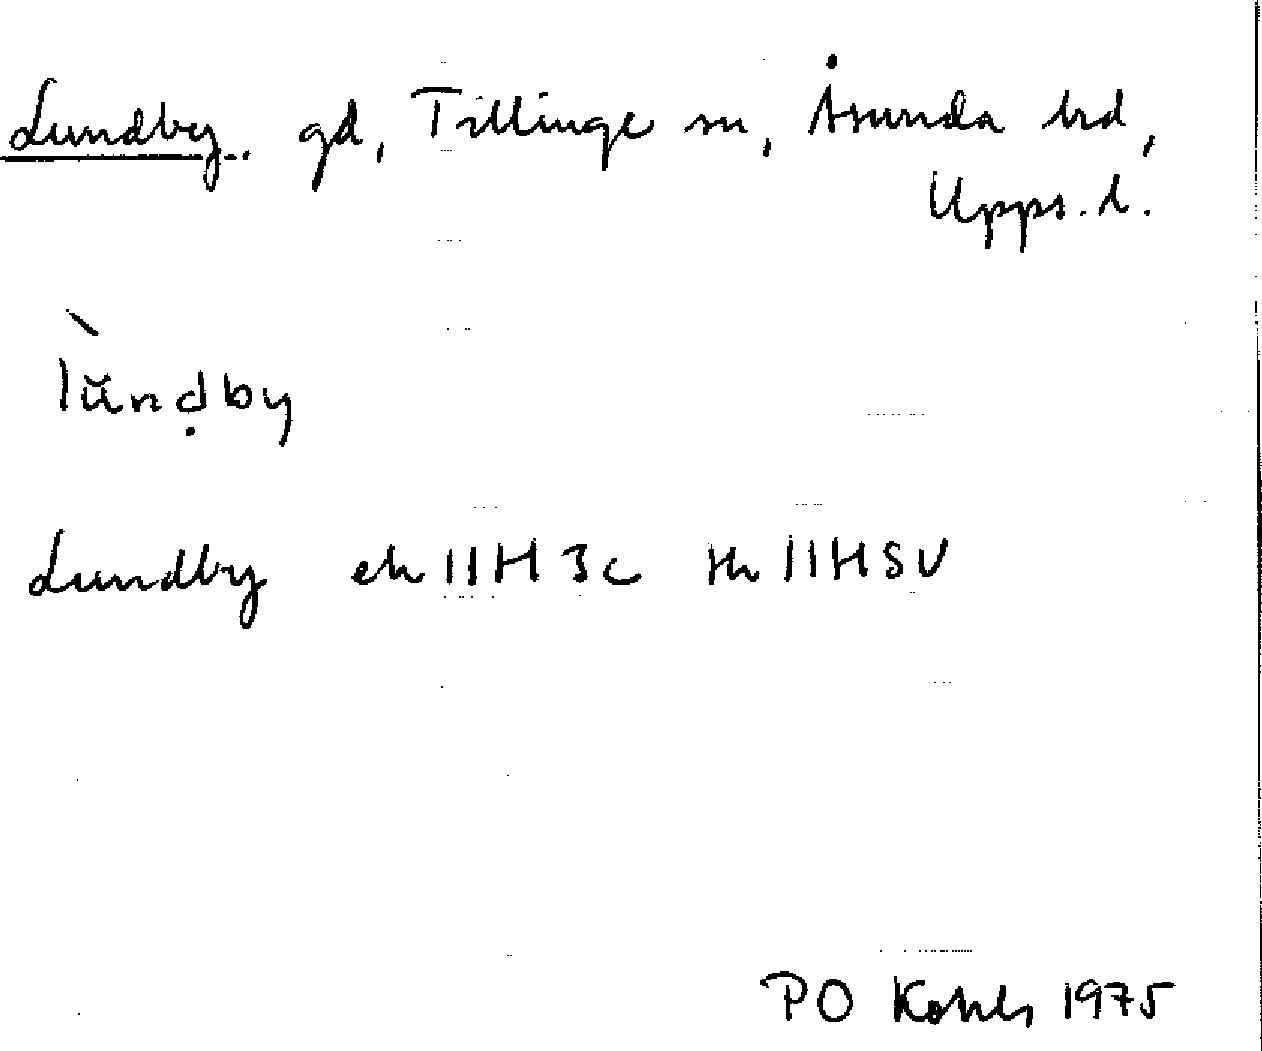 Lundby. gd, Tillinge sn, Åsunda hd,
Upps. l.
lŭnḍby
Lundby ek 11H 3c tk 11HSV
PO 1975